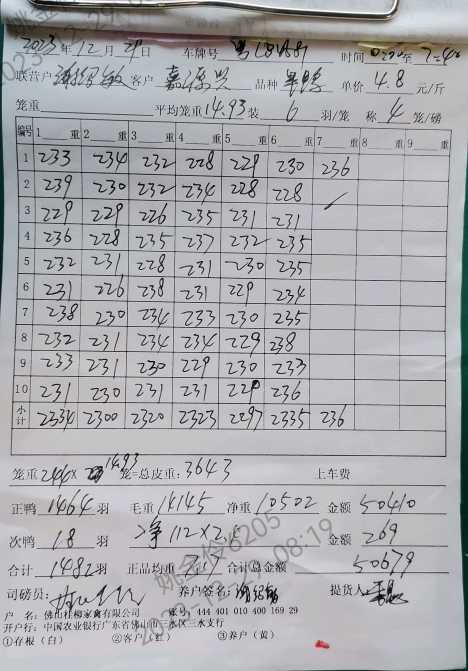 2023年12月29日 车牌号 时间 至
联营户 客户 嘉源兴 品种 单价 4.8 元/斤
笼重 平均笼重 14.93 装 6 羽/笼 称 4 笼/磅
编号 1 重 2 重 3 重 4 重 5 重 6 重 7 重 8 重 9 重
1 233 234 232 228 229 230 236
2 239 230 232 234 228 228
3 229 229 226 235 231 231
4 236 228 235 237 232 235
5 232 231 228 231 230 235
6 231 226 238 231 229 234
7 238 230 234 233 230 235
8 232 231 234 234 229 238
9 233 231 230 229 230 233
10 231 230 231 231 229 236
小计 2334 2300 2320 2323 2297 2335 236
笼重 244 × 14.93 笼=总皮重: 3643 上车费
正鸭 1464 羽 毛重 14145 净重 10502 金额 50410
次鸭 18 羽 净 112 × 2.4 金额 269
合计 1482 羽 正品均重 合计总金额 50679
司磅员: 养户签名: 提货人:
户 名: 佛山桂柳家禽有限公司 账号: 444 401 010 400 169 29
开户行: 中国农业银行广东省佛山市三水区三水支行
①存根(白) ②客户(红) ③养户(黄)